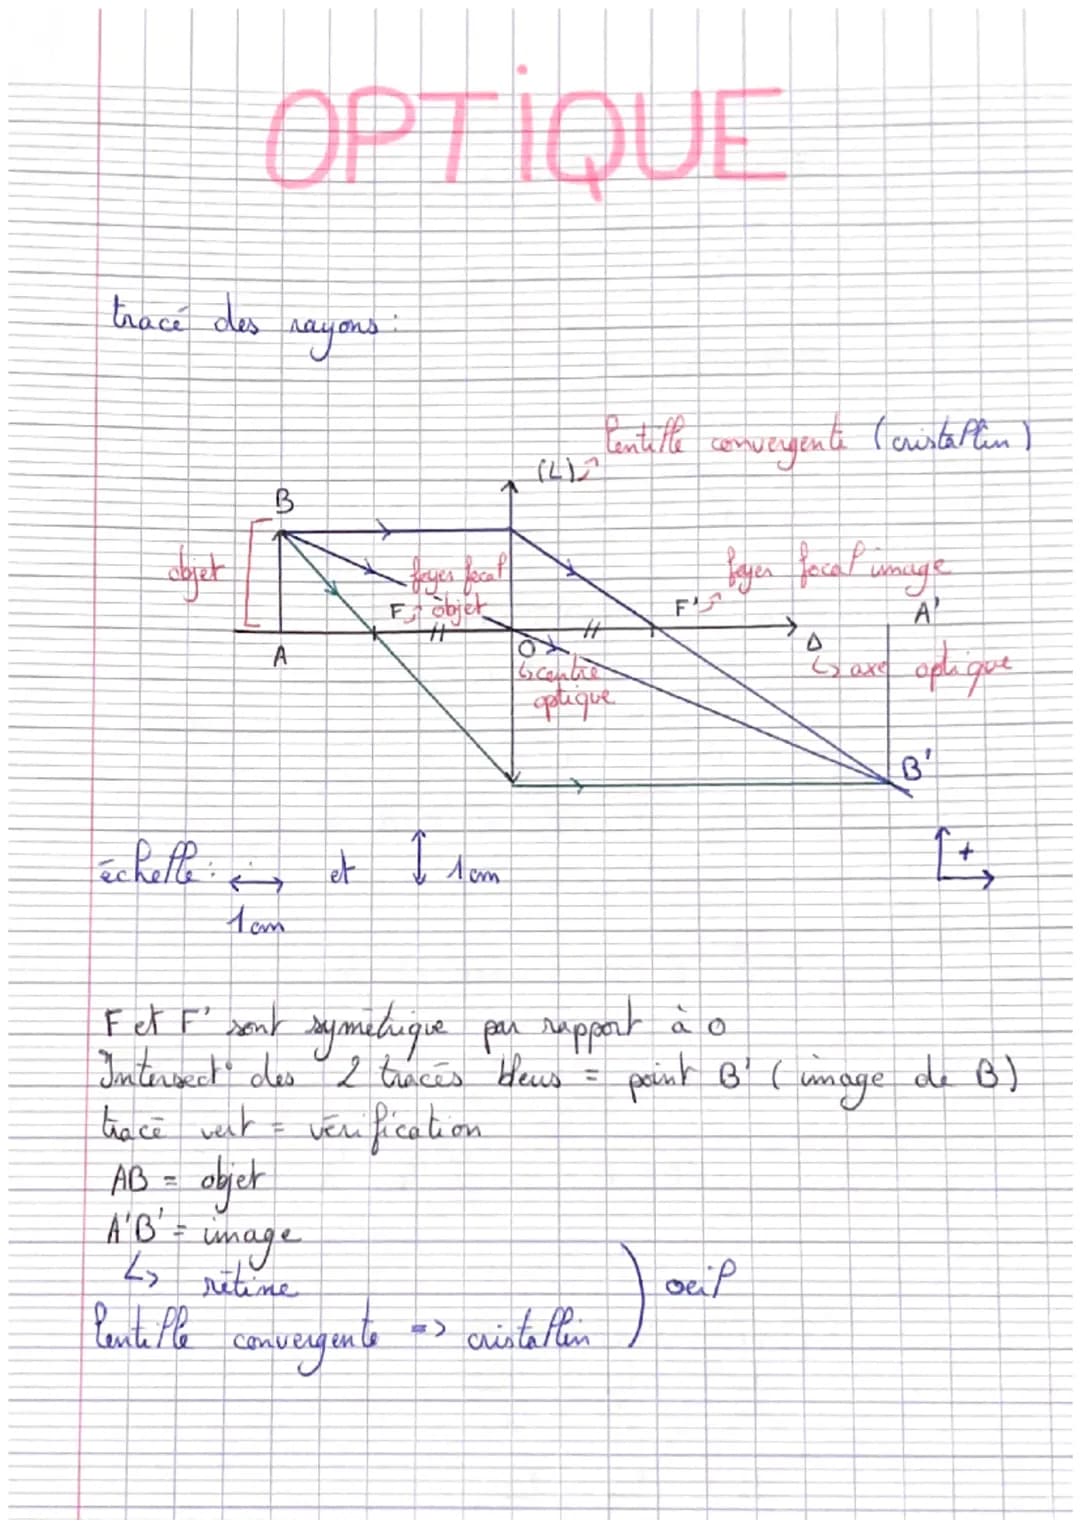 OPTIQUE
tracé des rayons :
lentille convergente (cristallin)
(L)
B
objet
foyer focal
objet
F
F'
foyer focal image
A'
A
O
centre
optique
Δ
axe optique
B'
échelle : 1cm et 1cm
+
F et F' sont symétrique par rapport à O
Intersect° des 2 tracés bleus = point B' (image de B)
tracé vert = vérification
AB = objet
A'B' = image
↳ rétine
lentille convergente => cristallin
oeil